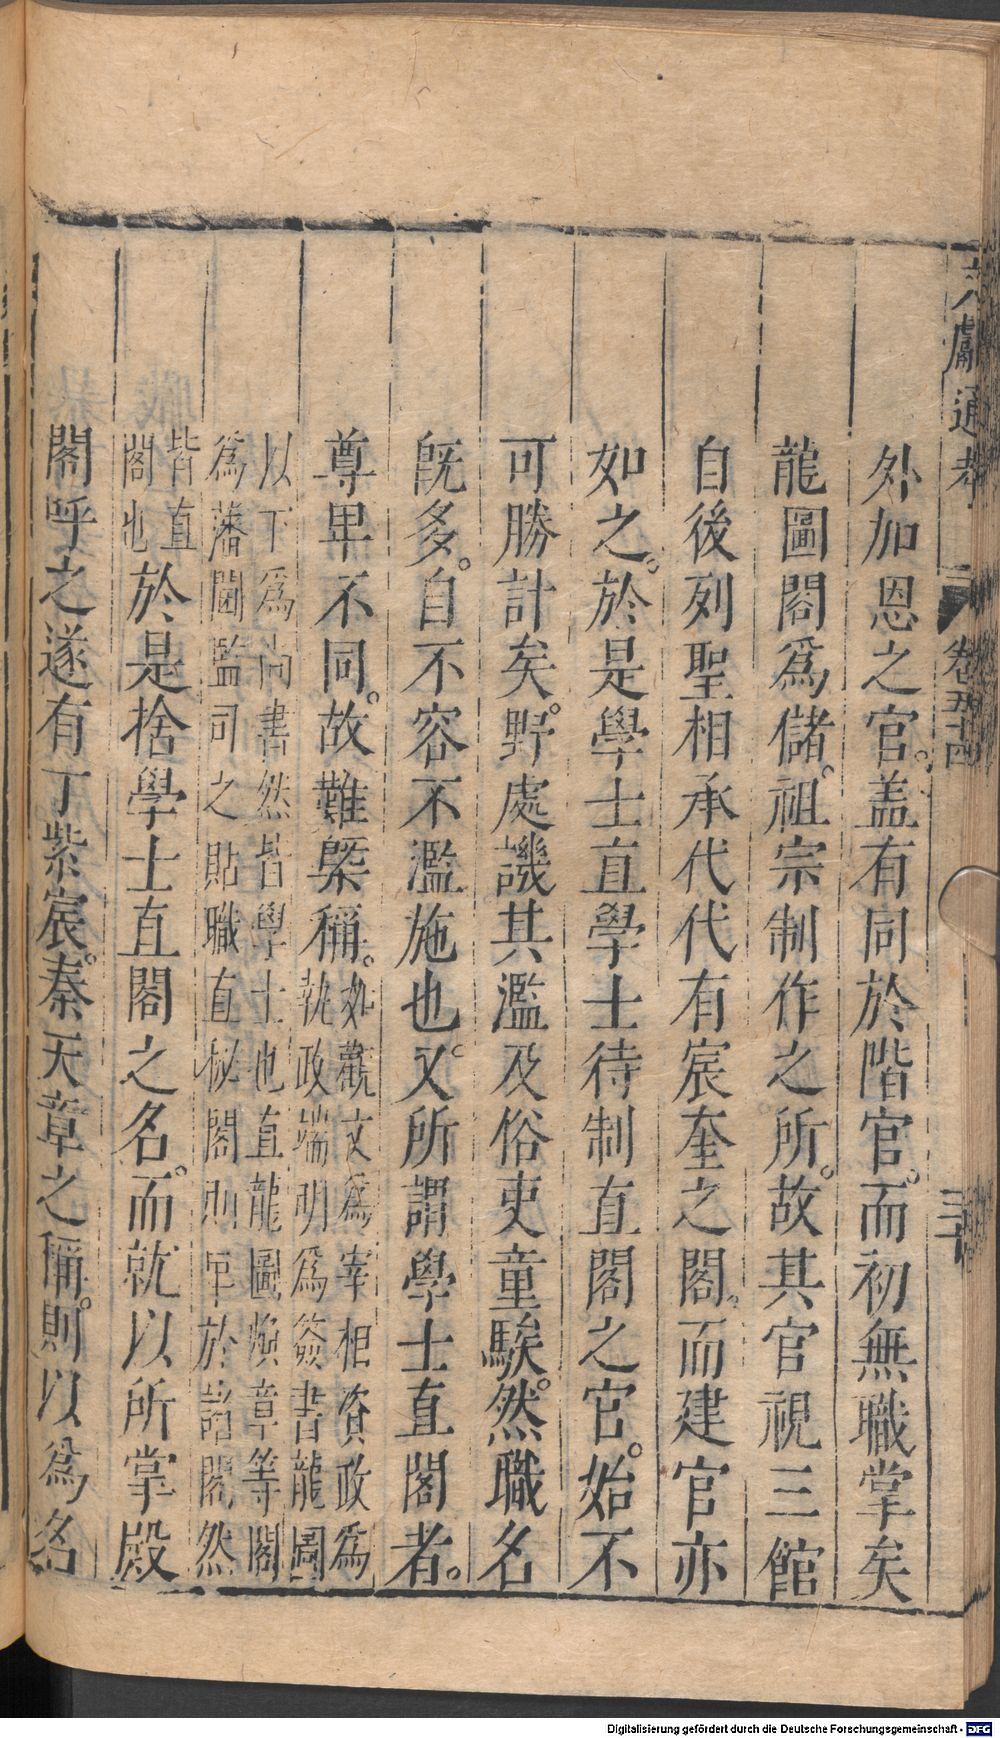 文獻通考 卷五十四 三十
外加恩之官。蓋有同於階官。而初無職掌矣
龍圖閣爲儲。祖宗制作之所。故其官視三館
自後列聖相承代代有宸奎之閣。而建官亦
如之。於是學士直學士待制直閣之官。始不
可勝計矣。野處譏其濫及俗吏童騃。然職名
旣多。自不容不濫施也。又所謂學士直閣者。
尊卑不同。故難槩稱。如觀文爲宰相資政爲
執政端明爲簽書龍圖
以下爲尚書然皆學士也直龍圖煥章等閣
爲藩閫監司之貼職直秘閣則卑於諸閣然
皆直
閣也於是捨學士直閣之名。而就以所掌殿
閣呼之遂有丁紫宸。秦天章之稱。則以爲名
Digitalisierung gefördert durch die Deutsche Forschungsgemeinschaft - DFG